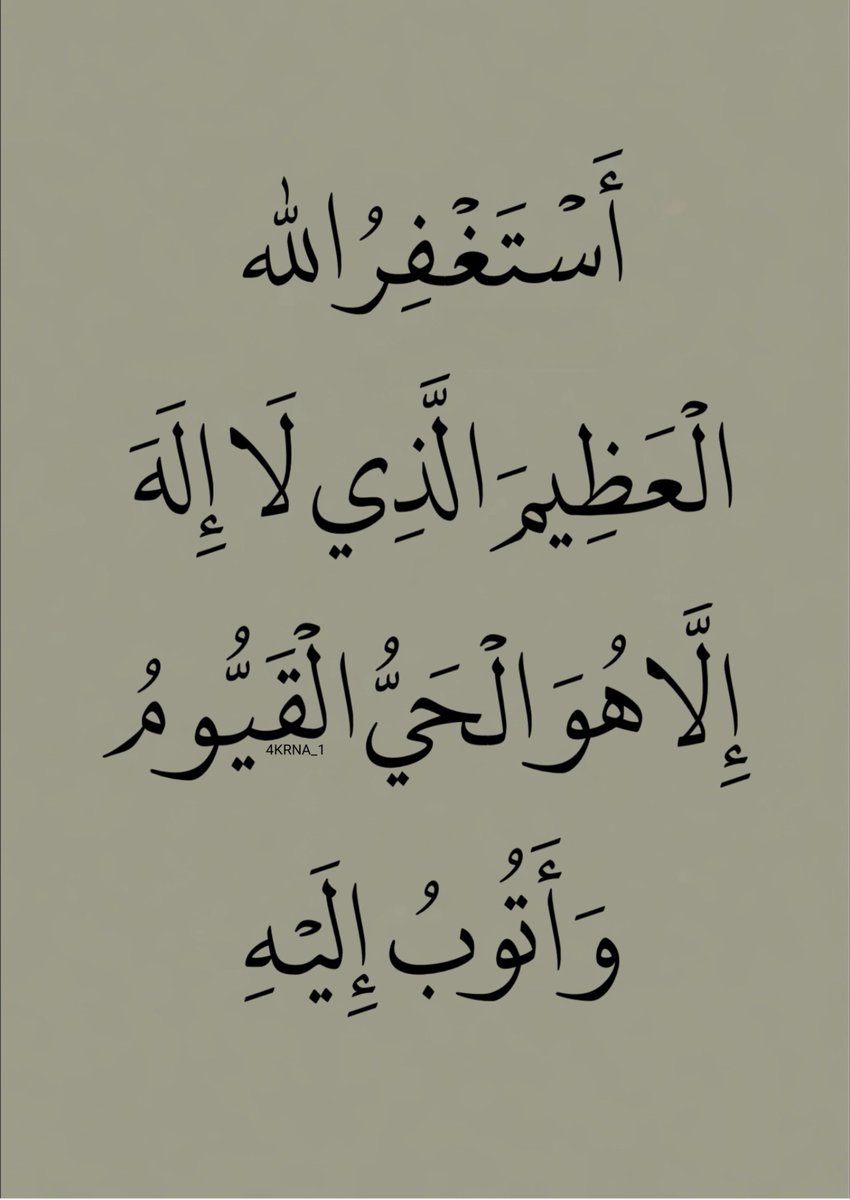 أَسْتَغْفِرُ الله
الْعَظِيمَ الَّذِي لَا إِلَهَ
إِلَّا هُوَ الْحَيُّ الْقَيُّومُ
4KRNA_1
وَأَتُوبُ إِلَيْهِ